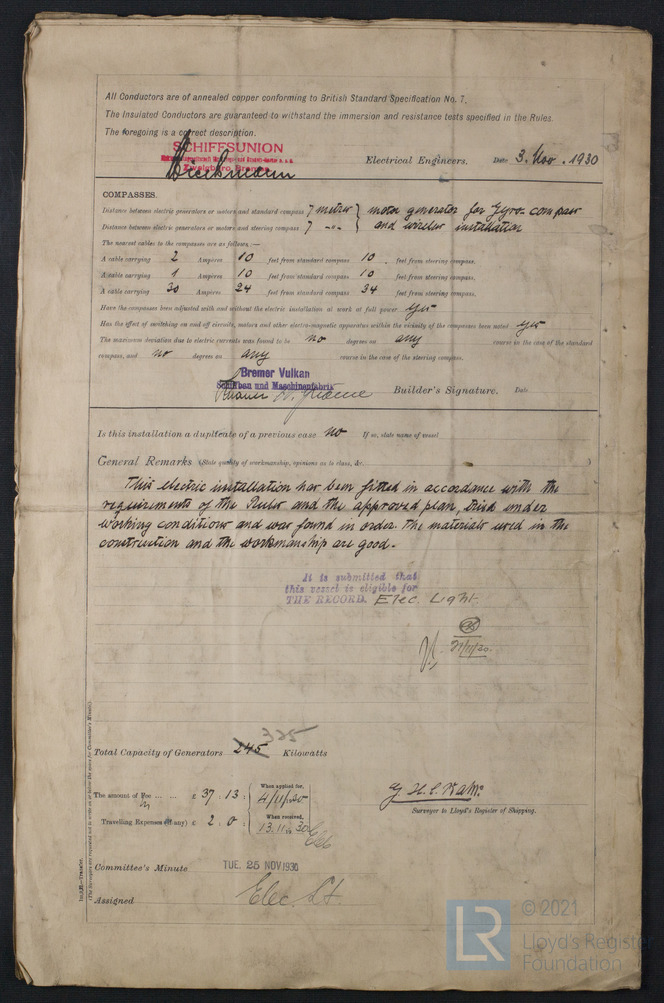 All Conductors are of annealed copper conforming to British Standard Specification No. 7.
The Insulated Conductors are guaranteed to withstand the immersion and resistance tests specified in the Rules.
The foregoing is a correct description.
SCHIFFSUNION
Electrical Engineers. Date 3. Nov. 1930
COMPASSES.
Distance between electric generators or motors and standard compass 7 metres } motor generator for Gyro compass
Distance between electric generators or motors and steering compass 7 -"- } and wireless installation
The nearest cables to the compasses are as follows:—
A cable carrying 2 Ampères 10 feet from standard compass 10 feet from steering compass.
A cable carrying 1 Ampères 10 feet from standard compass 10 feet from steering compass.
A cable carrying 30 Ampères 24 feet from standard compass 24 feet from steering compass.
Have the compasses been adjusted with and without the electric installation at work at full power Yes
Has the effect of switching on and off circuits, motors and other electro-magnetic apparatus within the vicinity of the compasses been noted yes
The maximum deviation due to electric currents was found to be no degrees on any course in the case of the standard
compass, and no degrees on any course in the case of the steering compass.
Bremer Vulkan
Schiffbau und Maschinenfabrik
Builder's Signature. Date
Is this installation a duplicate of a previous case no If so, state name of vessel
General Remarks (State quality of workmanship, opinions as to class, &c. )
This electric installation has been fitted in accordance with the
requirements of the Rules and the approved plan, tried under
working conditions and was found in order. The materials used in the
construction and the workmanship are good.-
It is submitted that
this vessel is eligible for
THE RECORD. Elec. Light
21/11/30.
325
Total Capacity of Generators 245 Kilowatts
The amount of Fee ... ... £ 37 : 13 : When applied for, 4/11/30
Travelling Expenses (if any) £ 2 . 0 : When received, 13.11.30
Surveyor to Lloyd's Register of Shipping.
Committee's Minute TUE. 25 NOV 1930
Assigned Elec. Lt.
(The Surveyors are requested not to write on or below the space for Committee's Minute.)
LR
© 2021
Lloyd's Register
Foundation